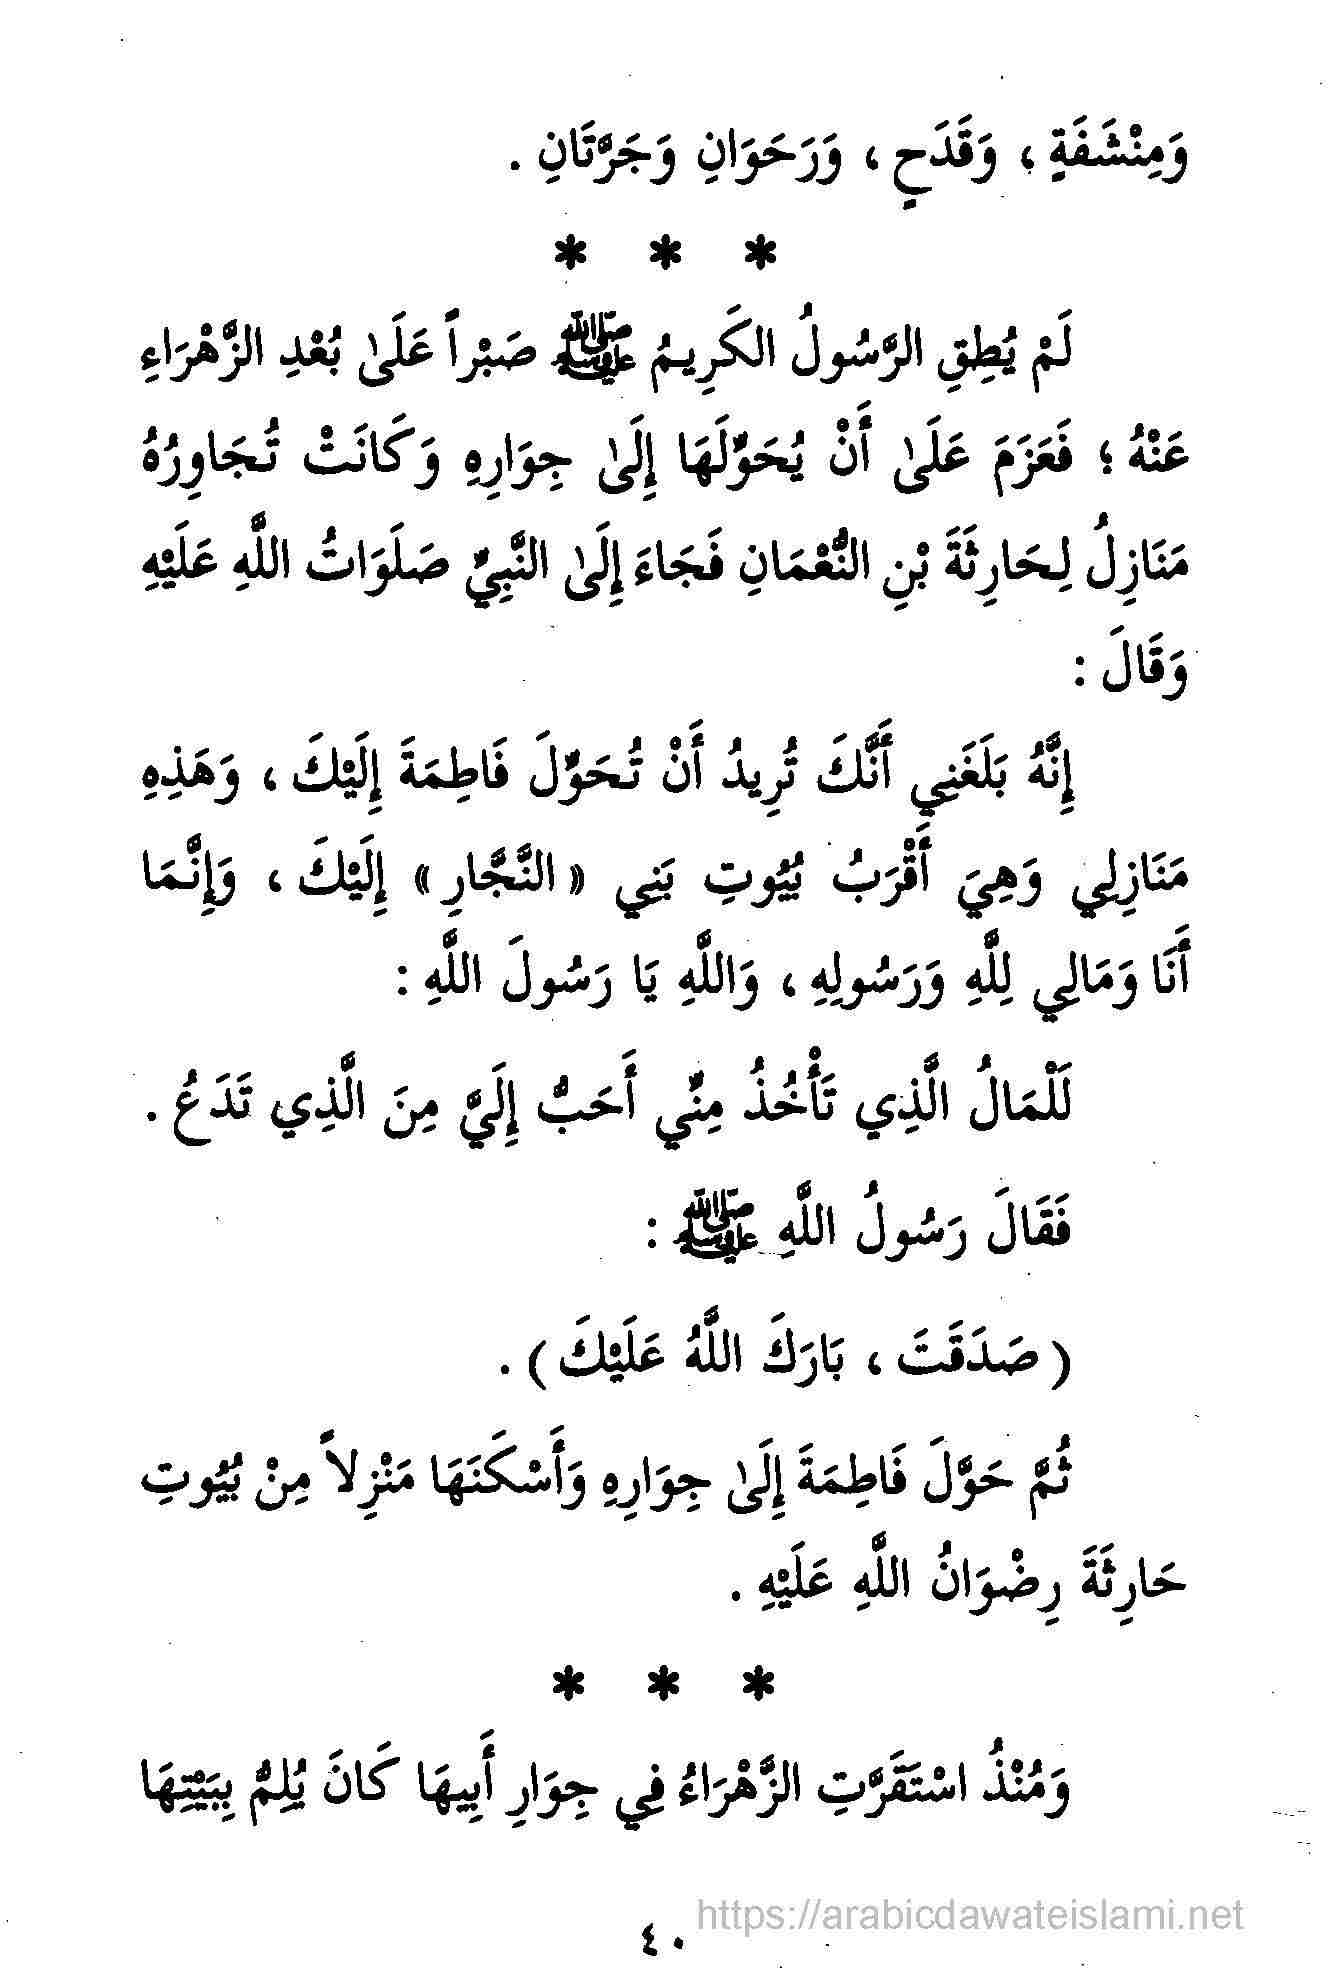 وَمِنْشَفَةٍ ، وَقَدَحٍ ، وَرَحَوَانِ وَجَرَّتَانِ .
* * *
لَمْ يُطِقِ الرَّسُولُ الكَرِيمُ ﷺ صَبْراً عَلَىٰ بُعْدِ الزَّهْرَاءِ
عَنْهُ ؛ فَعَزَمَ عَلَىٰ أَنْ يُحَوِّلَهَا إِلَىٰ جِوَارِهِ وَكَانَتْ تُجَاوِرُهُ
مَنَازِلُ لِحَارِثَةَ بْنِ النُّعْمَانِ فَجَاءَ إِلَىٰ النَّبِيِّ صَلَوَاتُ اللَّهِ عَلَيْهِ
وَقَالَ :
إِنَّهُ بَلَغَنِي أَنَّكَ تُرِيدُ أَنْ تُحَوِّلَ فَاطِمَةَ إِلَيْكَ ، وَهَذِهِ
مَنَازِلِي وَهِيَ أَقْرَبُ بُيُوتِ بَنِي « النَّجَّارِ » إِلَيْكَ ، وَإِنَّمَا
أَنَا وَمَالِي لِلَّهِ وَرَسُولِهِ ، وَاللَّهِ يَا رَسُولَ اللَّهِ :
لَلْمَالُ الَّذِي تَأْخُذُ مِنِّي أَحَبُّ إِلَيَّ مِنَ الَّذِي تَدَعُ .
فَقَالَ رَسُولُ اللَّهِ ﷺ :
( صَدَقَتَ ، بَارَكَ اللَّهُ عَلَيْكَ ) .
ثُمَّ حَوَّلَ فَاطِمَةَ إِلَىٰ جِوَارِهِ وَأَسْكَنَهَا مَنْزِلاً مِنْ بُيُوتِ
حَارِثَةَ رِضْوَانُ اللَّهِ عَلَيْهِ .
* * *
وَمُنْذُ اسْتَقَرَّتِ الزَّهْرَاءُ فِي جِوَارِ أَبِيهَا كَانَ يُلِمُّ بِبَيْتِهَا
https://arabicdawateislami.net
٤٠